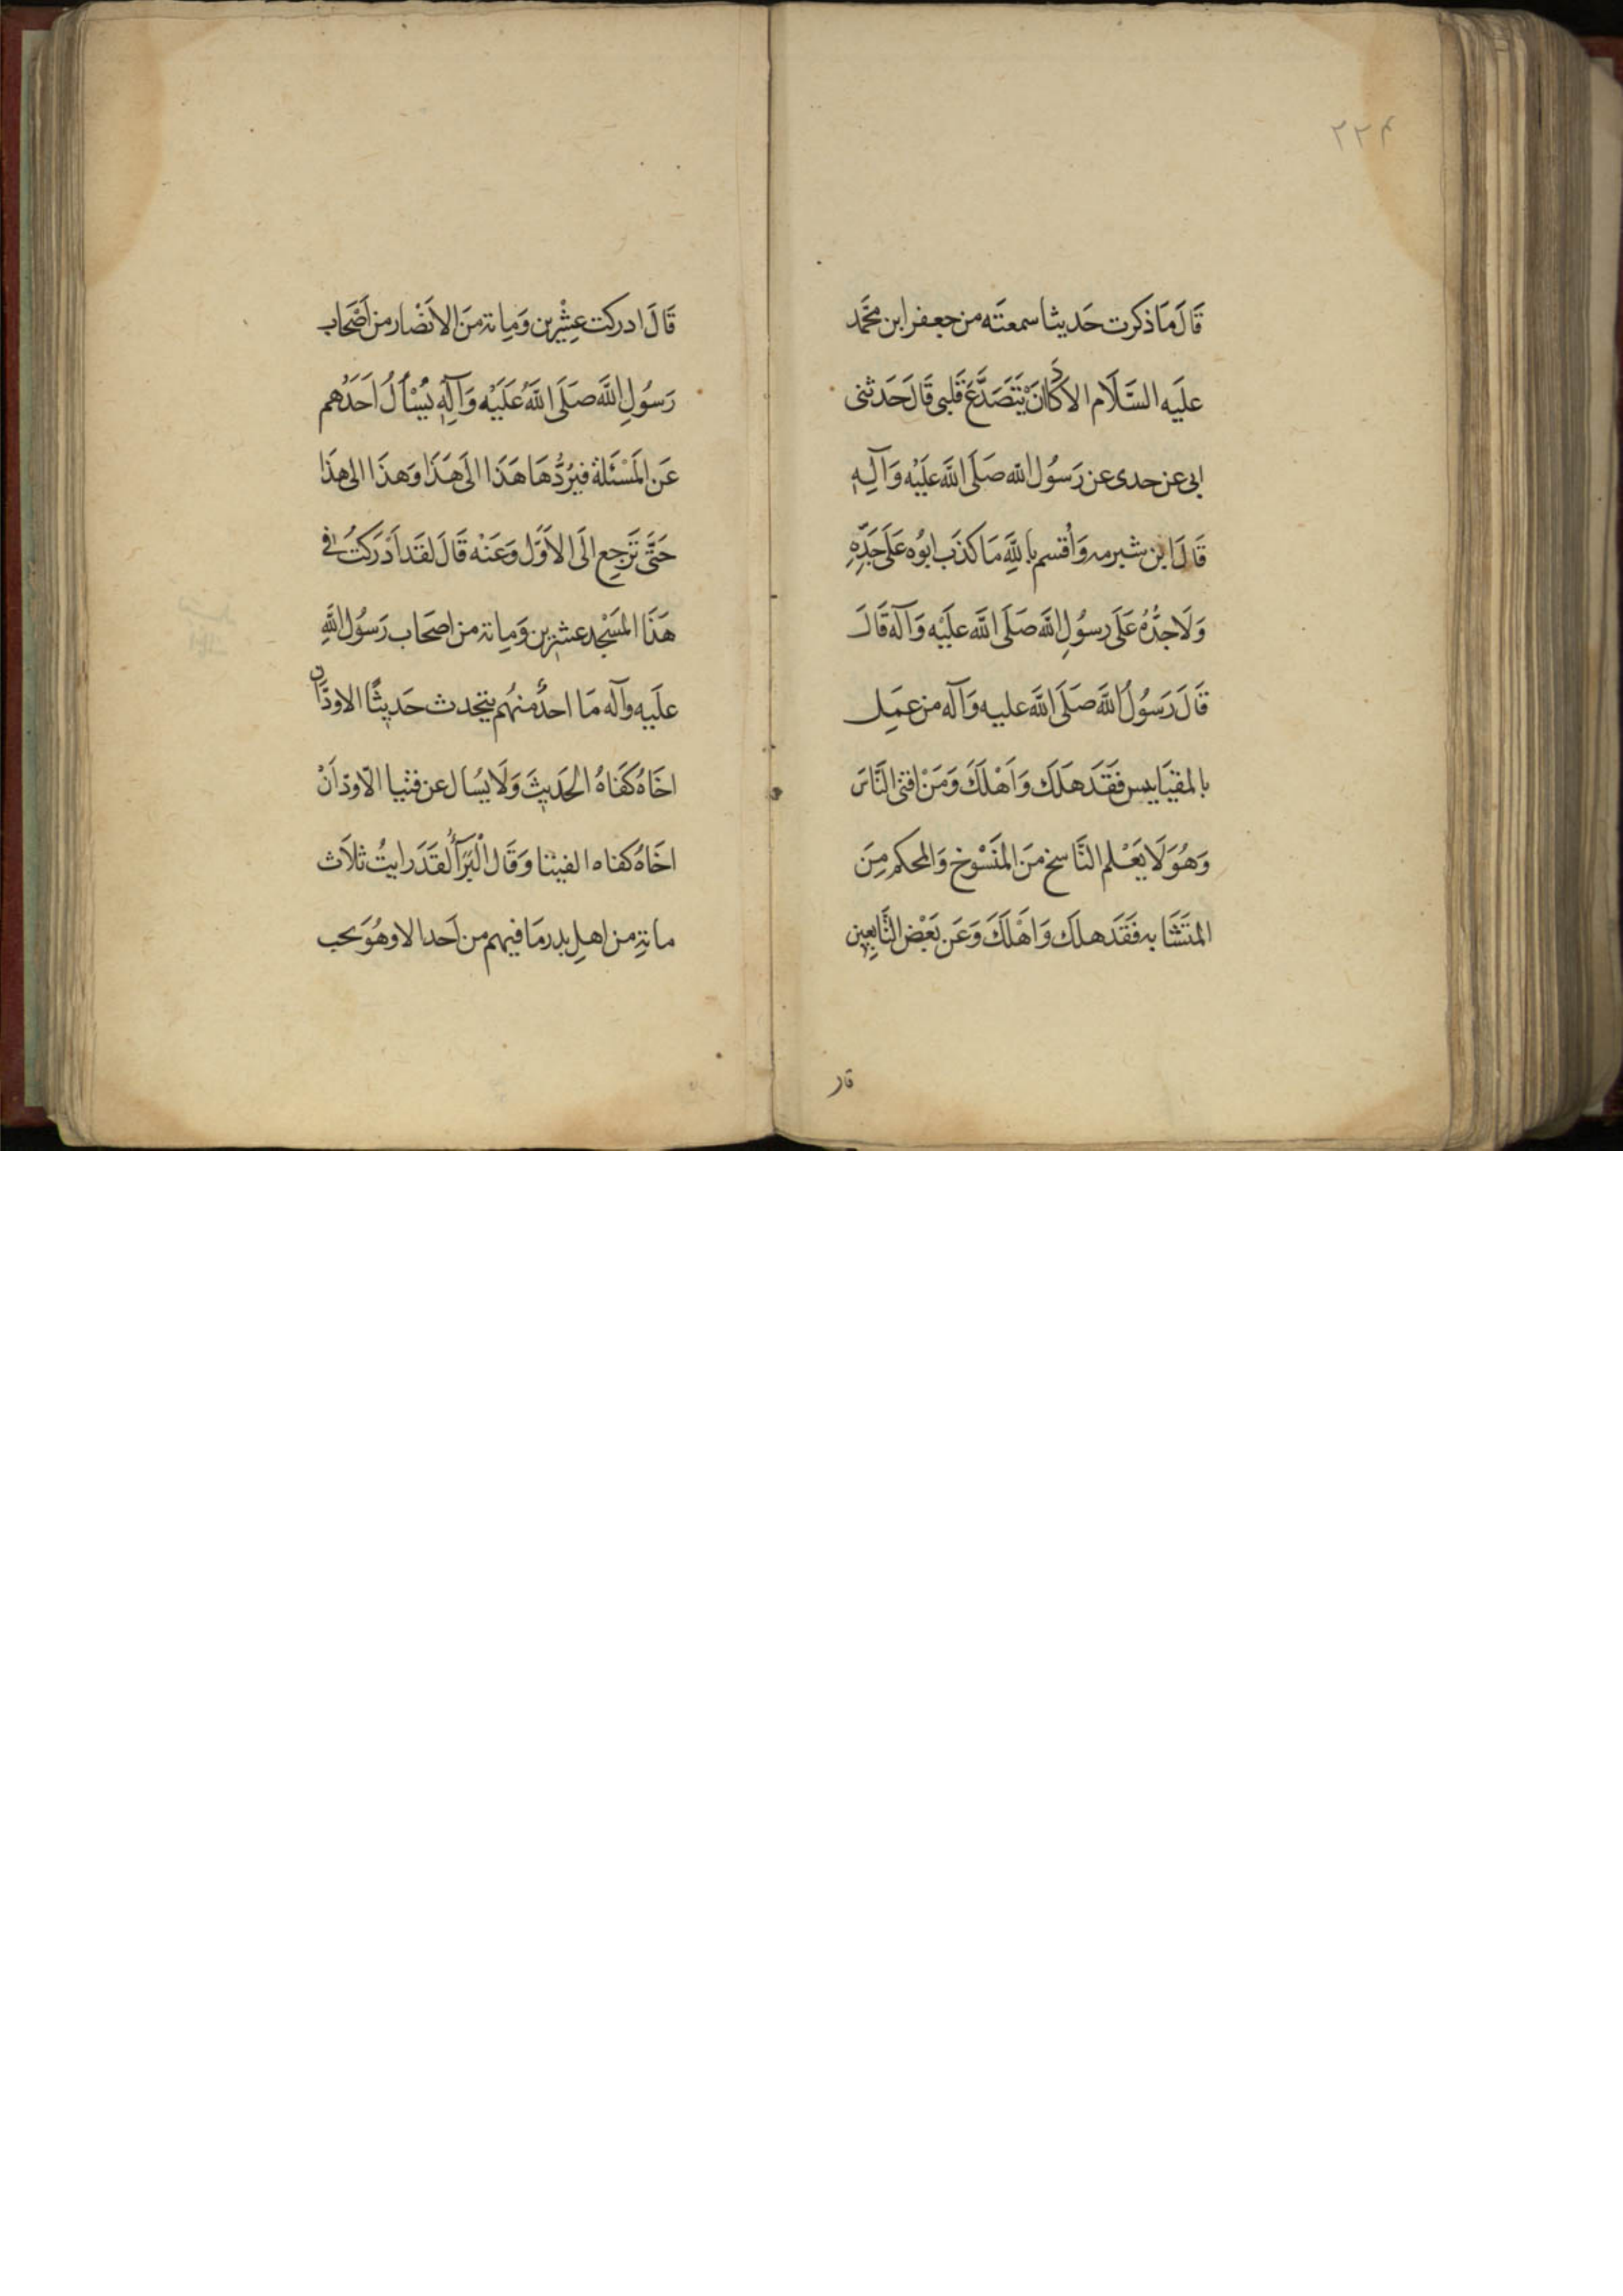 ۲۲۴
قَالَ مَا ذكرت حَديثا سمعتَه من جعفر ابن محَمَّد
علَيه السَّلَام الا كَادَ اَنْ يَتَصَدَّعَ قَلبى قَالَ حَدَثنى
ابى عن جدى عن رَسُول الله صَلَى اللهَ علَيْه وَآلِهِ
قَالَ ابن شبرمه وَاُقسم بالله مَا كذَب ابوُه علَى جَدِّهِ
وَلَا جدُّهُ عَلَى رسوُلِ الله صَلَى الله علَيْه وَآله قَالَ
قَالَ رَسُولُ الله صَلَى الله عليه وَآله من عمَل
بالمقيَاييس فقَدَ هلَكَ وَاَهْلكَ وَمَنْ افتى النَّاسَ
وَهُوَ لَا يَعْلم النَّاسخ منَ المنَسْوُخ وَالمحكم مِنَ
المتَشَابه فقَدَ هلكَ وَاَهْلَكَ وَعَن بَعْض التَّابعِين
قال
قَالَ ادركت عِشْرين وَمِاتة منَ الاَنْصَار من اَصْحَاب
رَسُولِ الله صَلَى اللهُ عَلَيْه وَآلِهِ يُسْأَلُ اَحَدُهم
عَن المَسْئَلة فيرُدُّهَا هَذَا الَى هَذَا وَهذَا الى هذَا
حَتَّى تَرَجِع الَى الاَوَّل وَعَنْه قَالَ لقَدَ اَدْرَكتُ فى
هَذَا المَسْجِد عشرين وَمِاتة من اصحَاب رَسُول اللهِ
علَيه وآله مَا احدٌ منهُم يتحدث حَديثًا الا ودَّان
اخَاهُ كَفَاهُ الحَديثَ وَلَا يُسَال عن فتيا الّا ودّ اَنْ
اخَاهُ كفاه الفيتا وَقَال الْبَرَآءُ لقَدَ رايتُ ثلاَث
ماتةِ من اهلِ بدر مَا فيهم من اَحد الا وهُوَ يحب